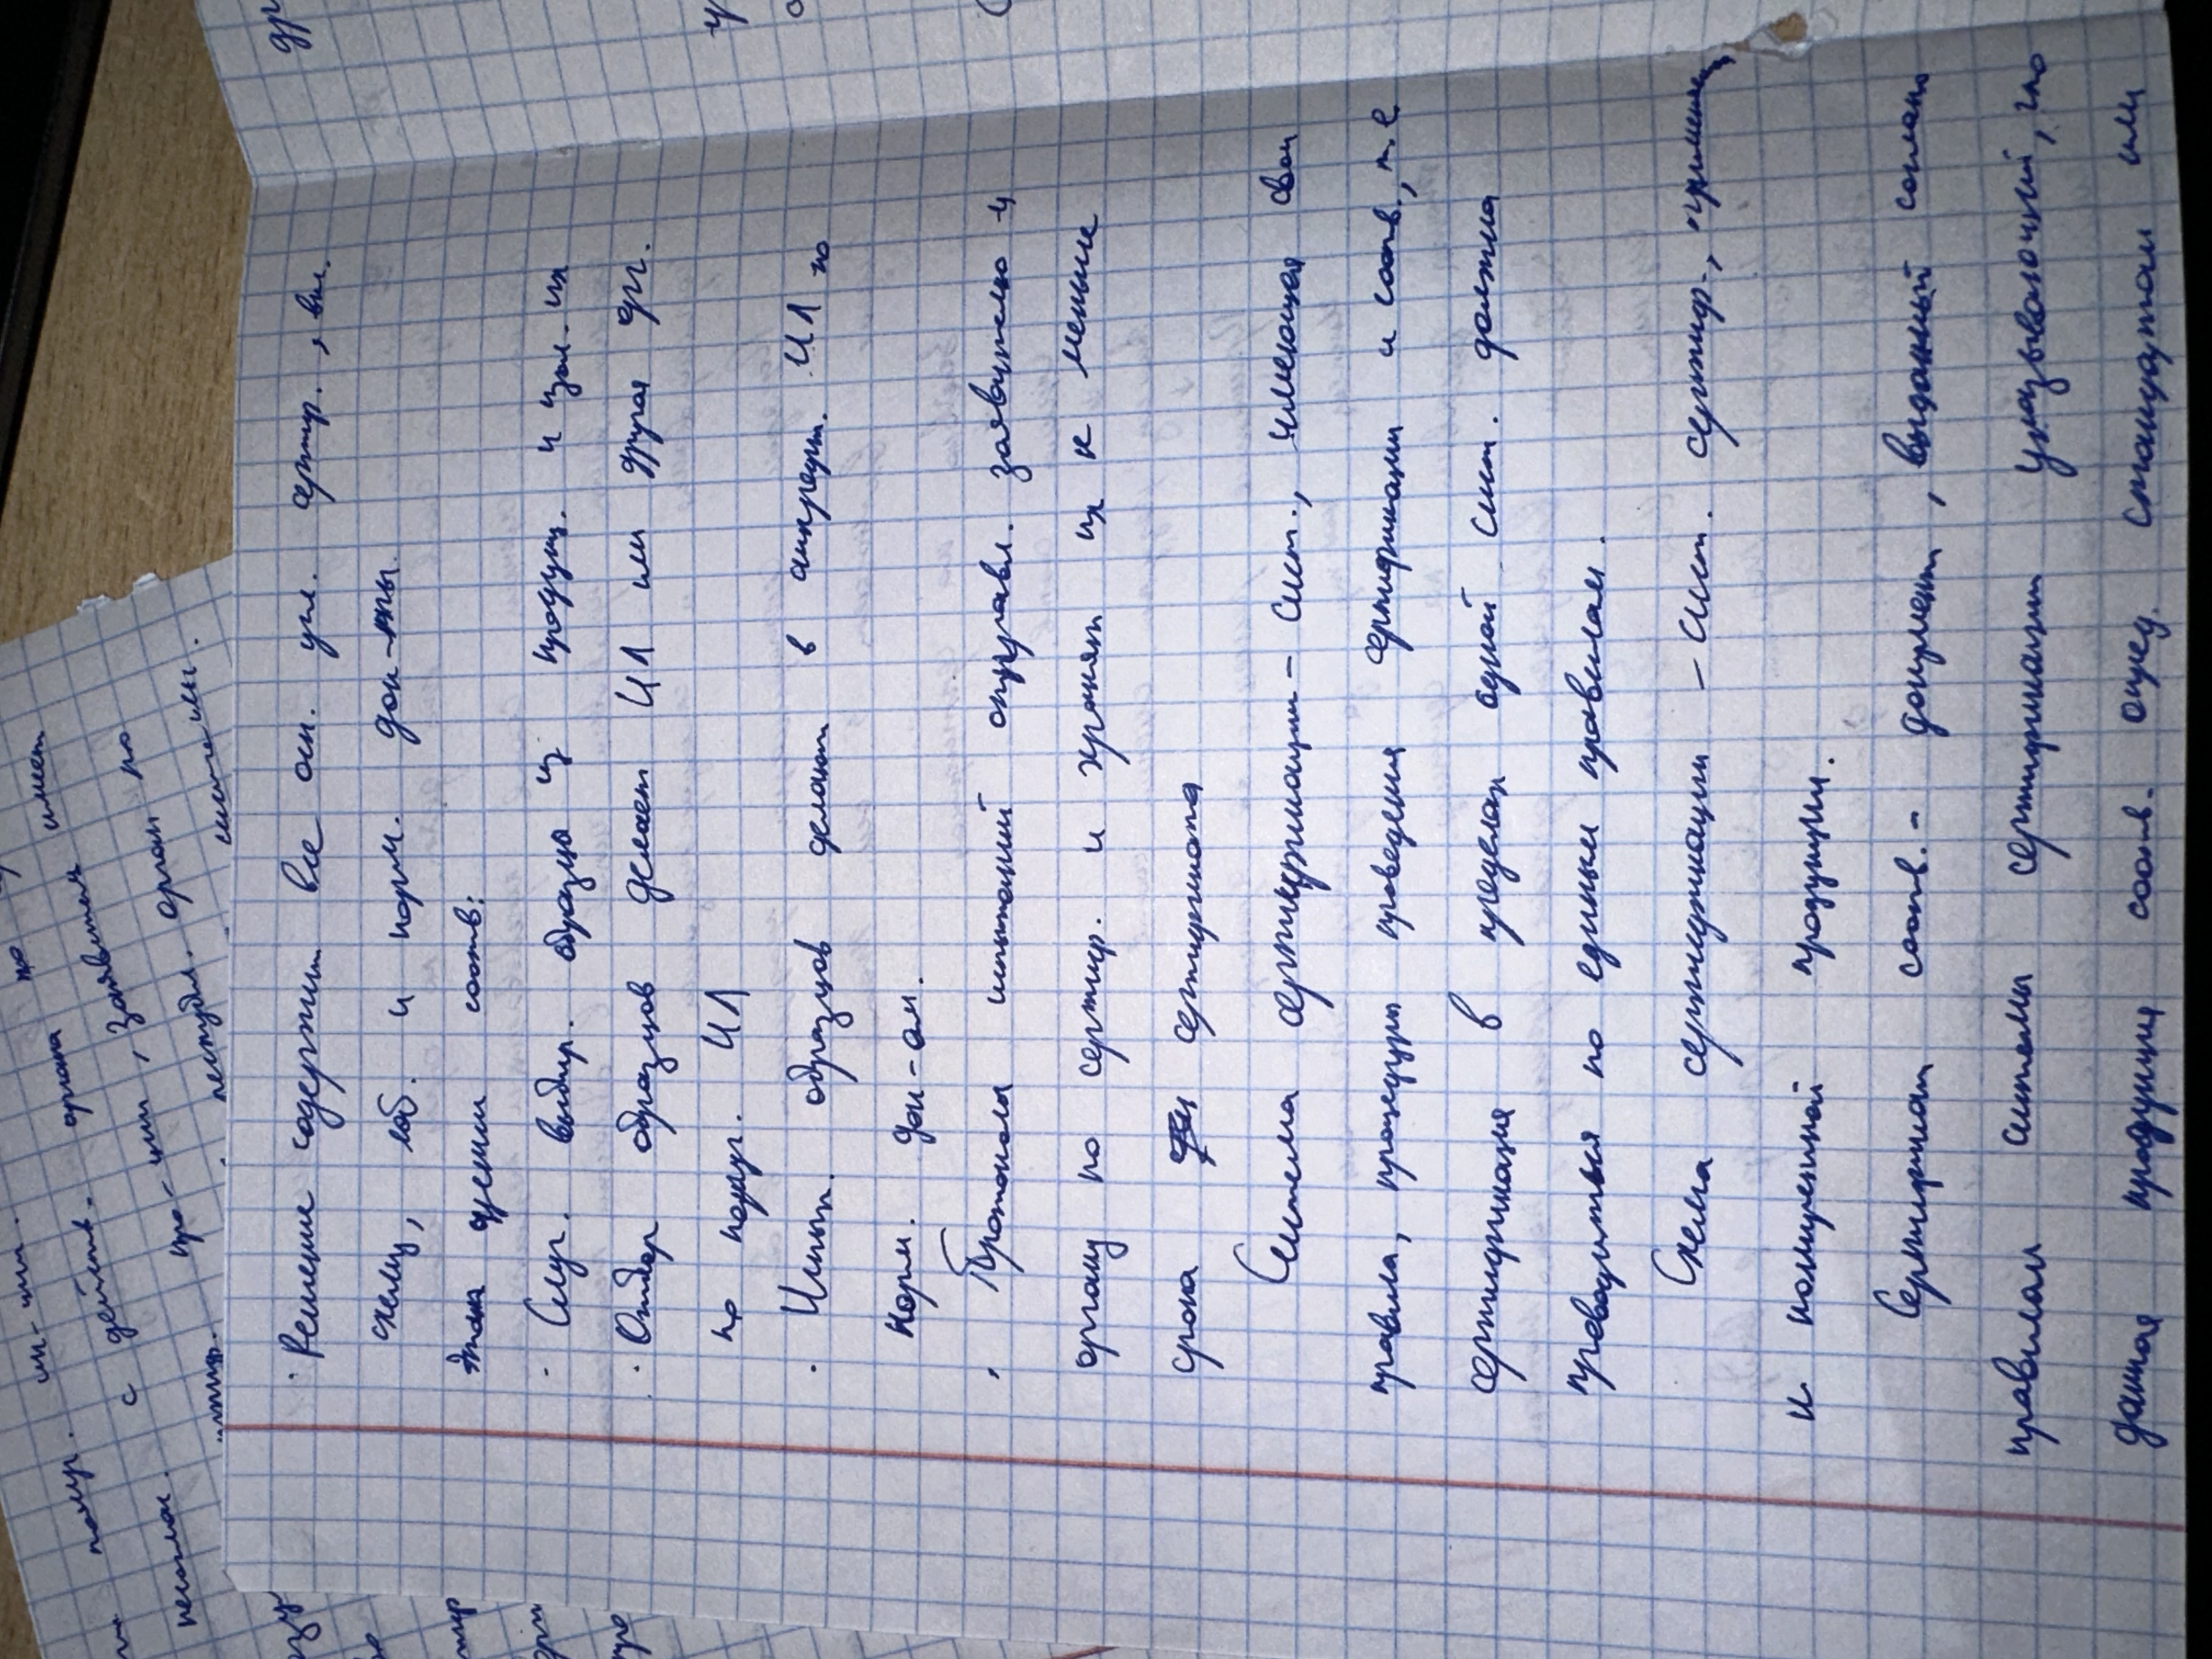 получ. ин-ции.
несоглас. с действ. органа по
про-ции, Заявитель имеет
республ. орган по
системы.
· Решение содержит все осн. усл. сертиф., вкл.
схему, лаб. и норм. док-ты.
Этап оценки соотв:
· Случ. выбир. образцы из продукц. и изол. их
· Отбор образцов делает ИЛ или другая орг.
по поруч. ИЛ
· Испыт. образцов делают в аккредит. ИЛ по
норм. док-ам.
· Протоколы испытаний отправл. заявителю и
органу по сертиф. и хранят их не меньше
срока сертификата
Система сертификации – сист., имеющая свои
правила, процедуры проведения сертификации и соотв., т.е.
сертификация в пределах одной сист. должна
проводиться по единым правилам.
Схема сертификации – сист. сертиф.,
к конкретной продукции.
Сертификат соотв. – документ, выданный согласно
правилам системы сертификации указывающий, что
данная продукция соотв. опред. стандартам или